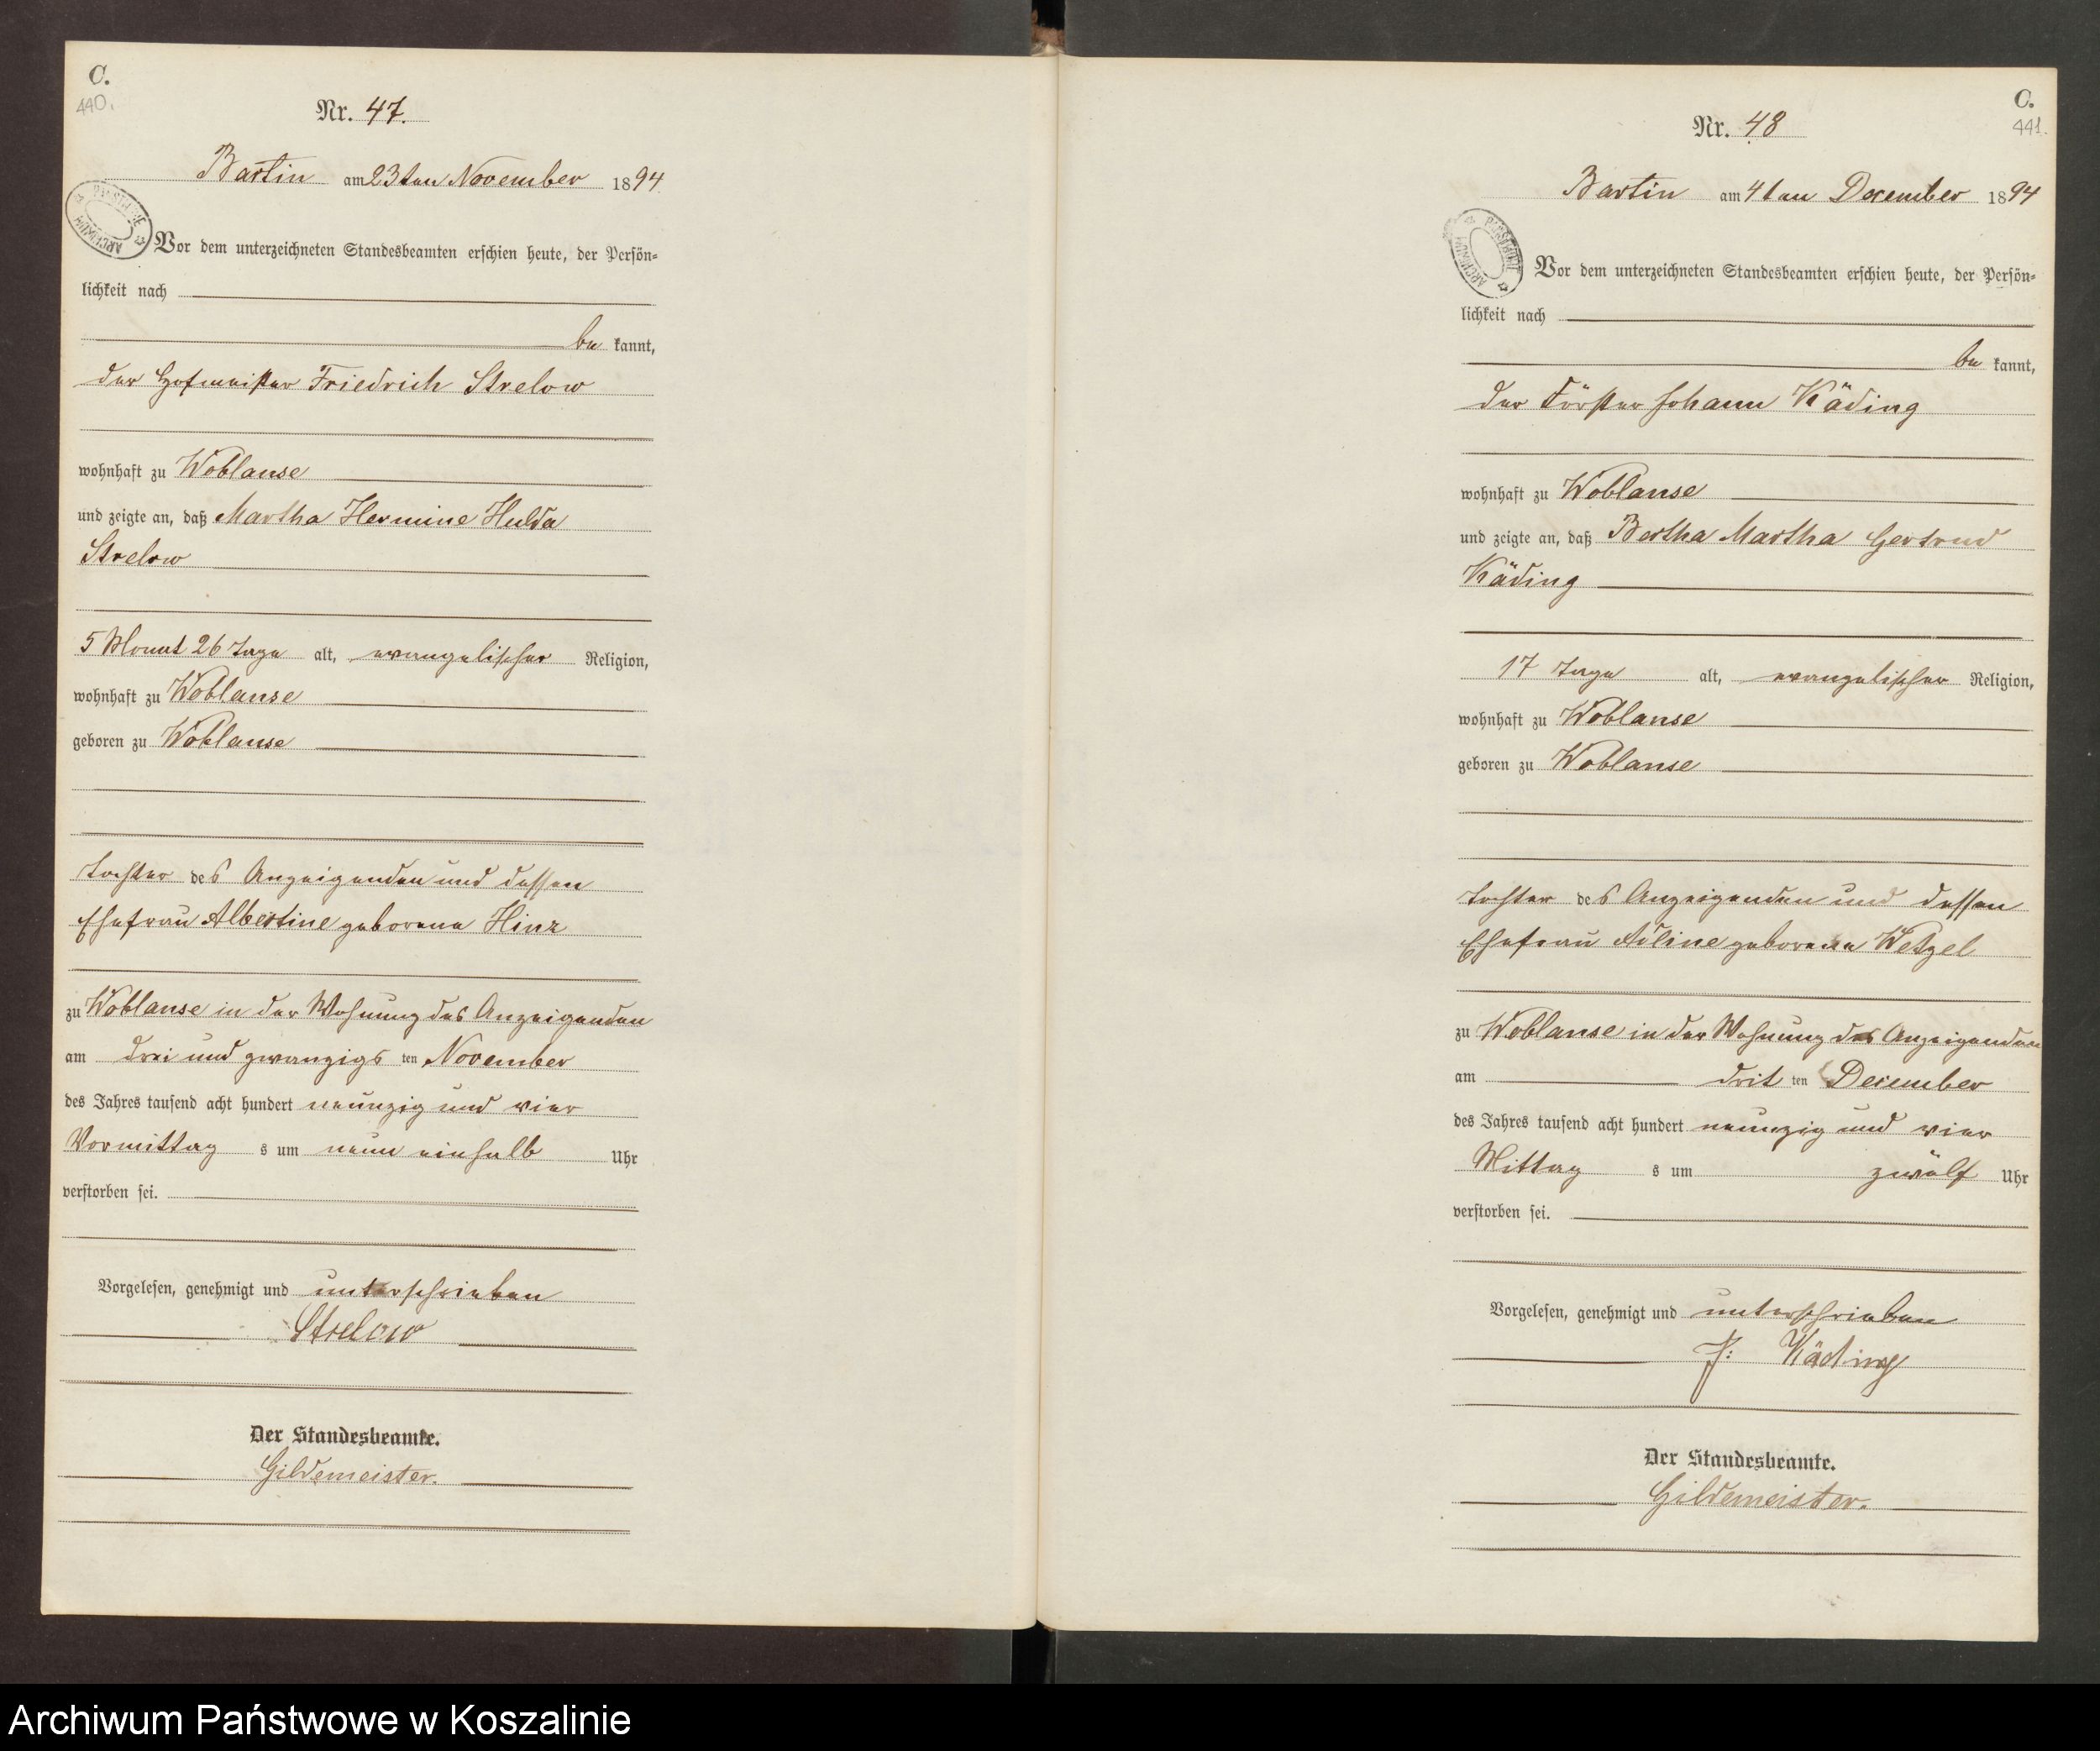 C.
440.
Nr. 47.
Bartin am 23ten November 1894.
Vor dem unterzeichneten Standesbeamten erschien heute, der Persön=
lichkeit nach
be kannt,
der Hofmeister Friedrich Strelow
wohnhaft zu Woblanse
und zeigte an, daß Martha Hermine Hulda
Strelow
5 Monat 26 Tage alt, evangelischer Religion,
wohnhaft zu Woblanse
geboren zu Woblanse
Tochter des Anzeigenden und dessen
Ehefrau Albertine geborene Hinz
zu Woblanse in der Wohnung des Anzeigenden
am drei und zwanzigs ten November
des Jahres tausend acht hundert neunzig und vier
Vormittag s um neun einhalb Uhr
verstorben sei.
Vorgelesen, genehmigt und unterschrieben
Strelow
Der Standesbeamte.
Gildemeister.
C.
441.
Nr. 48
Bartin am 4ten December 1894
Vor dem unterzeichneten Standesbeamten erschien heute, der Persön=
lichkeit nach
be kannt,
der Förster Johann Käding
wohnhaft zu Woblanse
und zeigte an, daß Bertha Martha Gertrud
Käding
17 Tage alt, evangelischer Religion,
wohnhaft zu Woblanse
geboren zu Woblanse
Tochter des Anzeigenden und dessen
Ehefrau geborene Wetzel
zu Woblanse in der Wohnung des Anzeigenden
am drit ten December
des Jahres tausend acht hundert neunzig und vier
Mittag s um zwölf Uhr
verstorben sei.
Vorgelesen, genehmigt und unterschrieben
J: Käding
Der Standesbeamte.
Gildemeister.
Archiwum Państwowe w Koszalinie